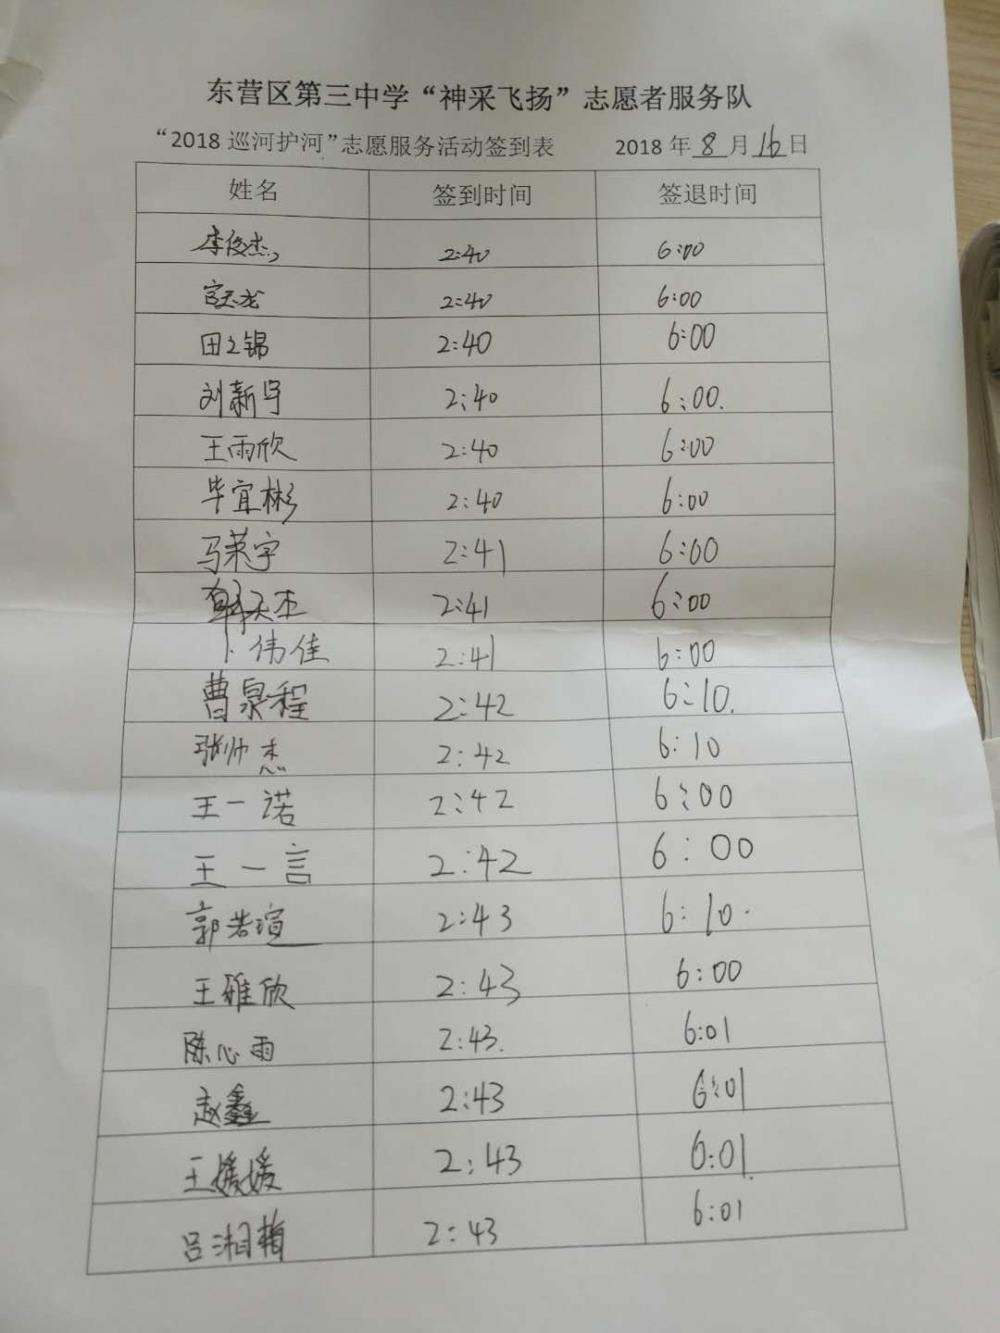 东营区第三中学“神采飞扬”志愿者服务队
“2018巡河护河”志愿服务活动签到表 2018年8月16日
姓名 签到时间 签退时间
李俊杰 2:40 6:00
官天龙 2:40 6:00
田文锦 2:40 6:00
刘新宇 2:40 6:00.
王雨欣 2:40 6:00
毕宜彬 2:40 6:00
马荣宇 2:41 6:00
天杰 2:41 6:00
卜伟佳 2:41 6:00
曹泉程 2:42 6:10.
张帅杰 2:42 6:10
王一诺 2:42 6:00
王一言 2:42 6:00
郭浩瑄 2:43 6:10.
王雅欣 2:43 6:00
陈心雨 2:43. 6:01
赵鑫 2:43 6:01
王媛媛 2:43 6:01.
吕湘 2:43 6:01